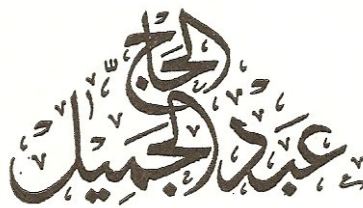 الحاج
عبد الجميل